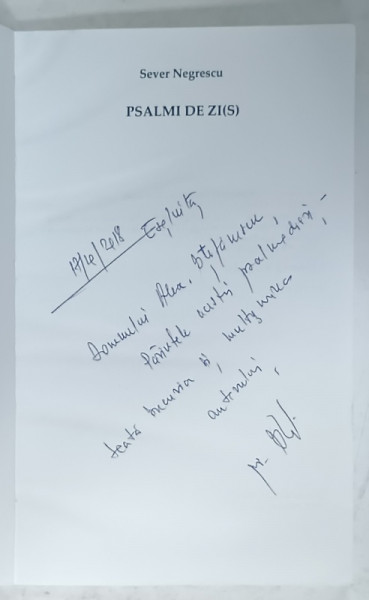 Sever Negrescu
PSALMI DE ZI(S)
17/4/2018
Domnului Alex. Ștefănescu,
Părintele acestor psalmodieri,
toată bucuria și mulțumirea
autorului,
pr.